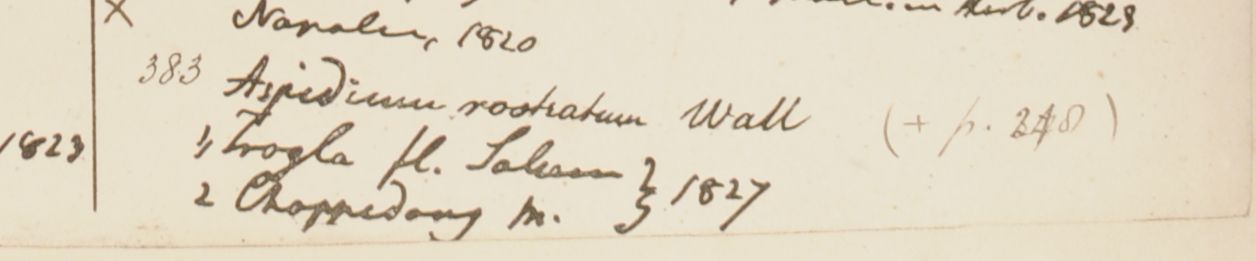 Herb. 1823
× Napalia, 1820
383 Aspidium rostratum Wall (+ p. 248)
1823
1, Trogla fl. Salueen } 1827
2 Chappedong m.